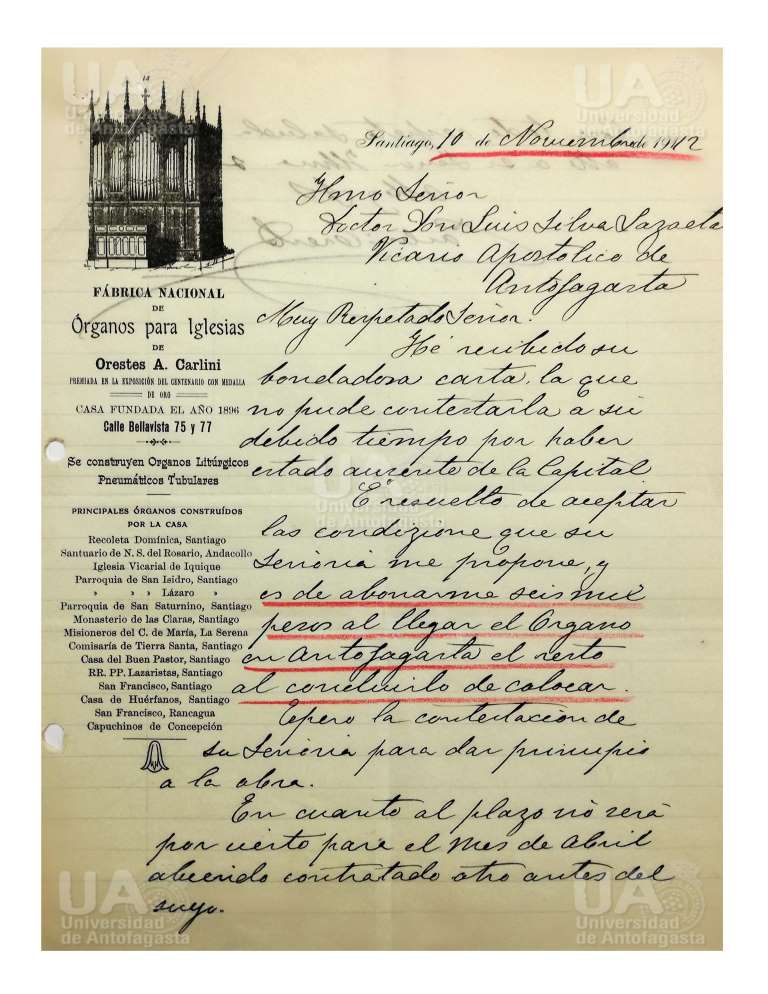 UA
Universidad
de Antofagasta
UA
Universidad
de Antofagasta
Santiago, 10 de Noviembre de 1912
Ilmo Señor
Doctor Don Luis Silva Lazaeta
Vicario Apostólico de
Antofagasta
FÁBRICA NACIONAL
DE
Órganos para Iglesias
DE
Orestes A. Carlini
PREMIADA EN LA EXPOSICIÓN DEL CENTENARIO CON MEDALLA
DE ORO
CASA FUNDADA EL AÑO 1896
Calle Bellavista 75 y 77
Se construyen Organos Litúrgicos
Pneumáticos Tubulares
PRINCIPALES ÓRGANOS CONSTRUÍDOS
POR LA CASA
Recoleta Domínica, Santiago
Santuario de N. S. del Rosario, Andacollo
Iglesia Vicarial de Iquique
Parroquia de San Isidro, Santiago
» » » Lázaro »
Parroquia de San Saturnino, Santiago
Monasterio de las Claras, Santiago
Misioneros del C. de María, La Serena
Comisaría de Tierra Santa, Santiago
Casa del Buen Pastor, Santiago
RR. PP. Lazaristas, Santiago
San Francisco, Santiago
Casa de Huérfanos, Santiago
San Francisco, Rancagua
Capuchinos de Concepción
Muy Respetado Señor.
Hé recibido su
bondadosa carta, la que
no pude contestarla a su
debido tiempo por haber
estado ausente de la Capital
E resuelto de aceptar
las condizione que su
Señoria me propone, y
es de abonarme seis mil
pesos al llegar el Organo
en Antofagasta el resto
al concluirlo de colocar.
Espero la contestacion de
su Señoria para dar principio
a la obra.
En cuanto al plazo nò será
por cierto para el mes de Abril
abiendo contratado otro antes del
suyo.
UA
Universidad
de Antofagasta
UA
Universidad
de Antofagasta
UA
Universidad
de Antofagasta